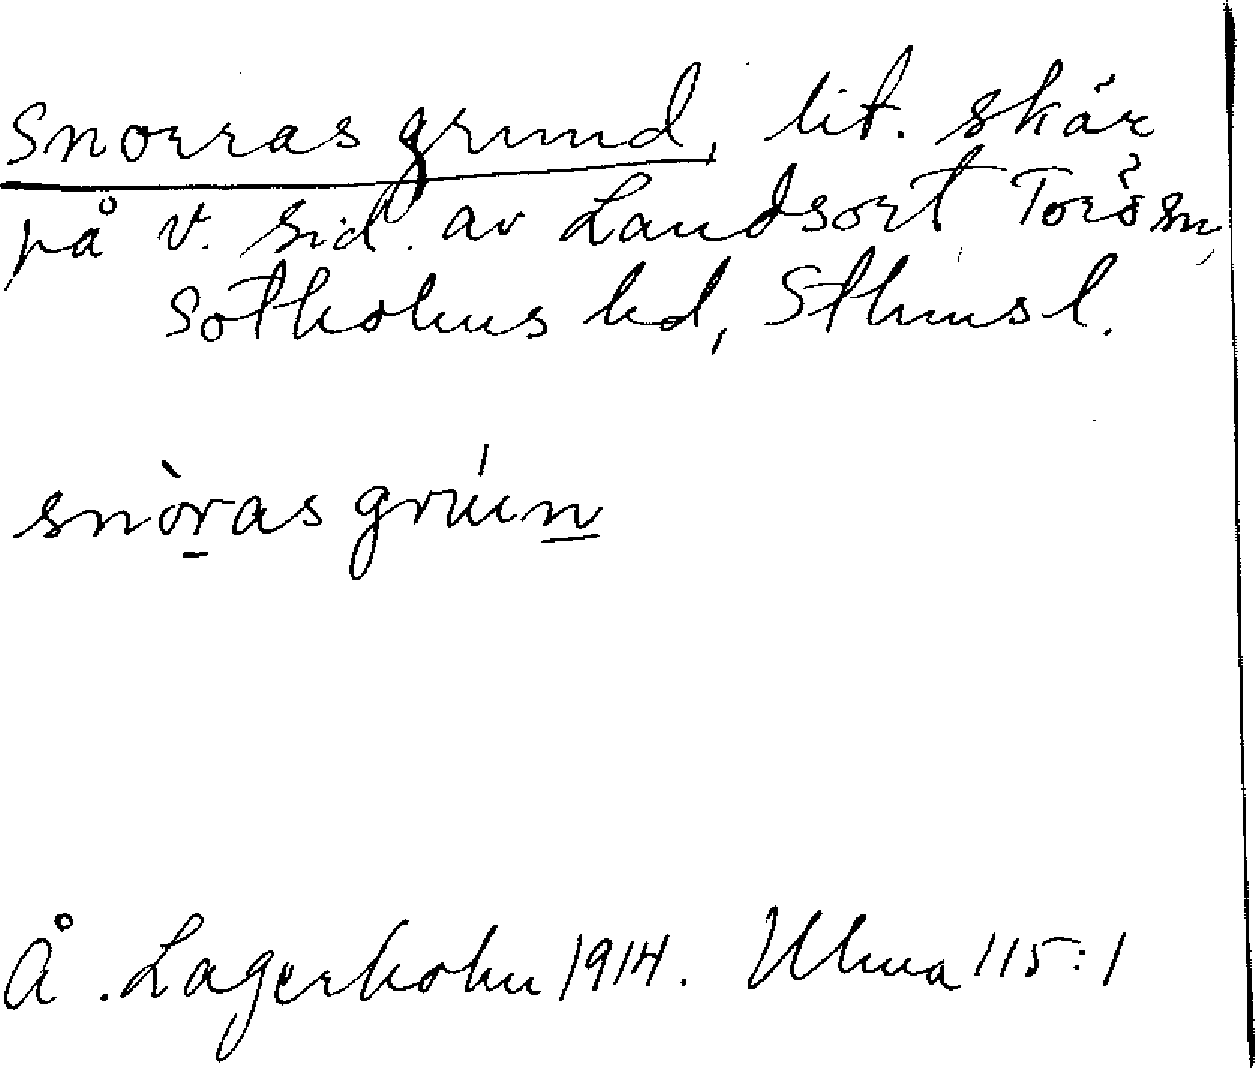 Snorras grund, lit. skär
på v. sid. av Landsort, Torö sn,
Sotholms hd, Sthms l.
snòras grúun
Å. Lagerholm 1914. Ulma 115:1